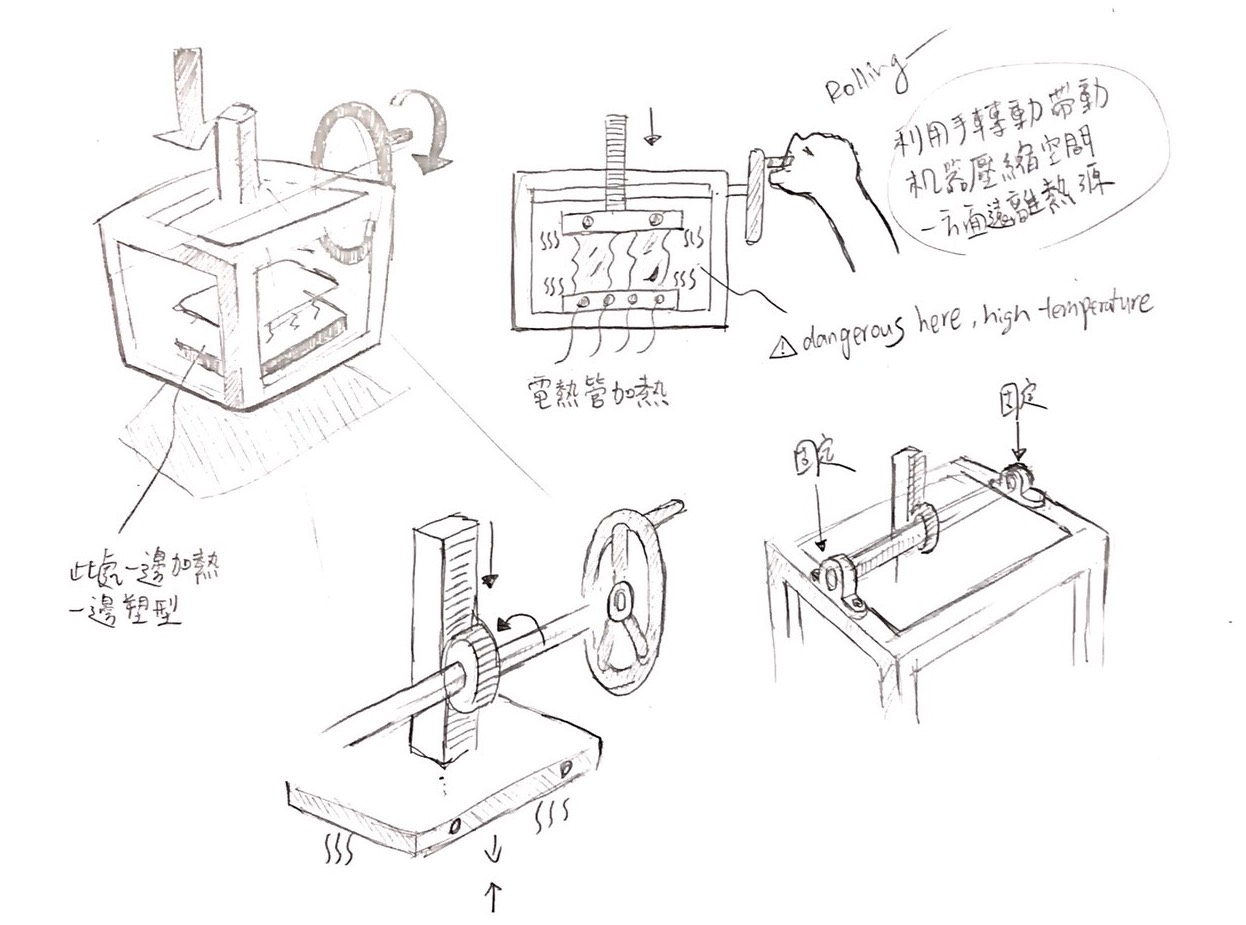 Rolling
利用手轉動帶動
机器壓縮空間
一方面遠離熱源
⚠ dangerous here, high temperature
電熱管加熱
固定
固定
此處一邊加熱
一邊塑型